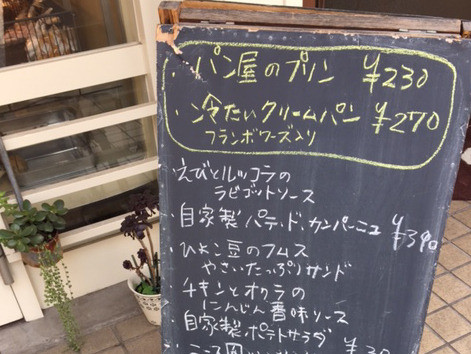 ・パン屋のプリン ¥230
・冷たいクリームパン ¥270
フランボワーズ入り
・えびとルッコラの
ラビゴットソース
・自家製 パテ・ド・カンパーニュ ¥390
・ひよこ豆のフムス
やさいたっぷりサンド
・チキンとオクラの
にんじん香味ソース
自家製ポテトサラダ